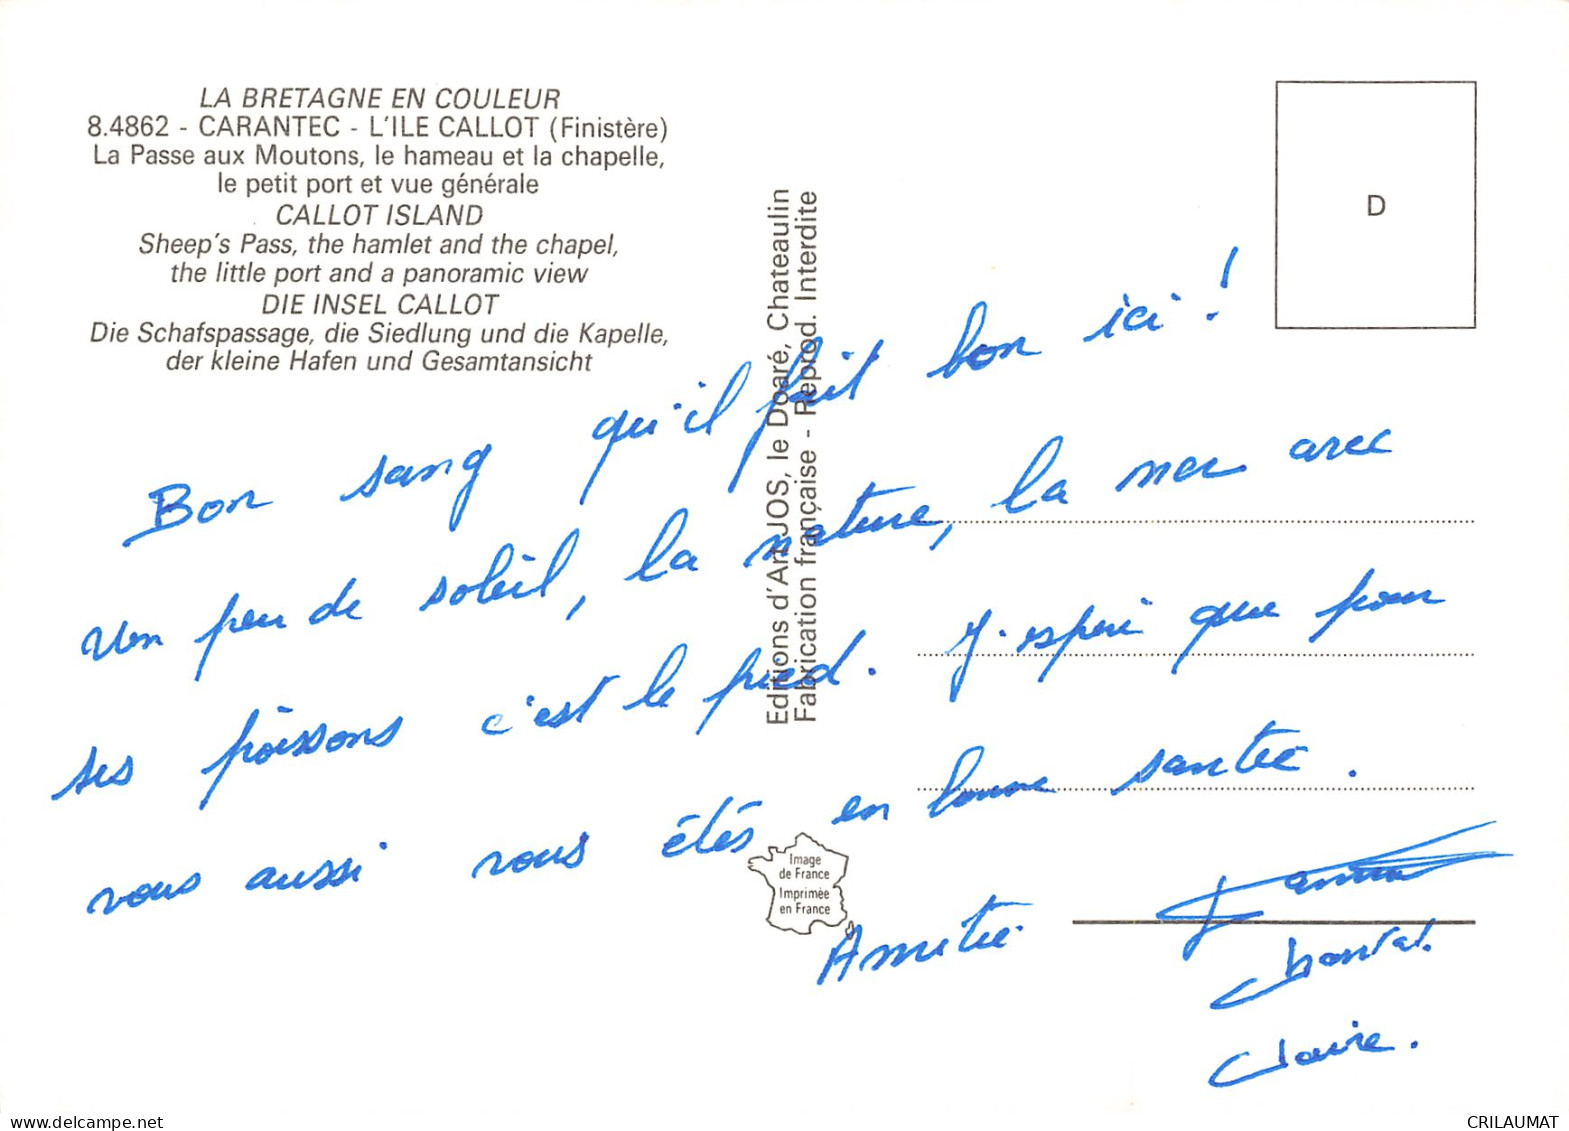 LA BRETAGNE EN COULEUR
8.4862 - CARANTEC - L'ILE CALLOT (Finistère)
La Passe aux Moutons, le hameau et la chapelle,
le petit port et vue générale
CALLOT ISLAND
Sheep's Pass, the hamlet and the chapel,
the little port and a panoramic view
DIE INSEL CALLOT
Die Schafspassage, die Siedlung und die Kapelle,
der kleine Hafen und Gesamtansicht
Editions d'Art JOS, le Doaré, Chateaulin
Fabrication française - Reprod. Interdite
D
Bon sang qu'il fait bon ici !
Un peu de soleil, la nature, la mer avec
ses poissons c'est le pied. J'espère que pour
vous aussi vous étés en bonne santée.
Image
de France
Imprimée
en France
Amitié
Chantal.
Claire.
www.delcampe.net
CRILAUMAT